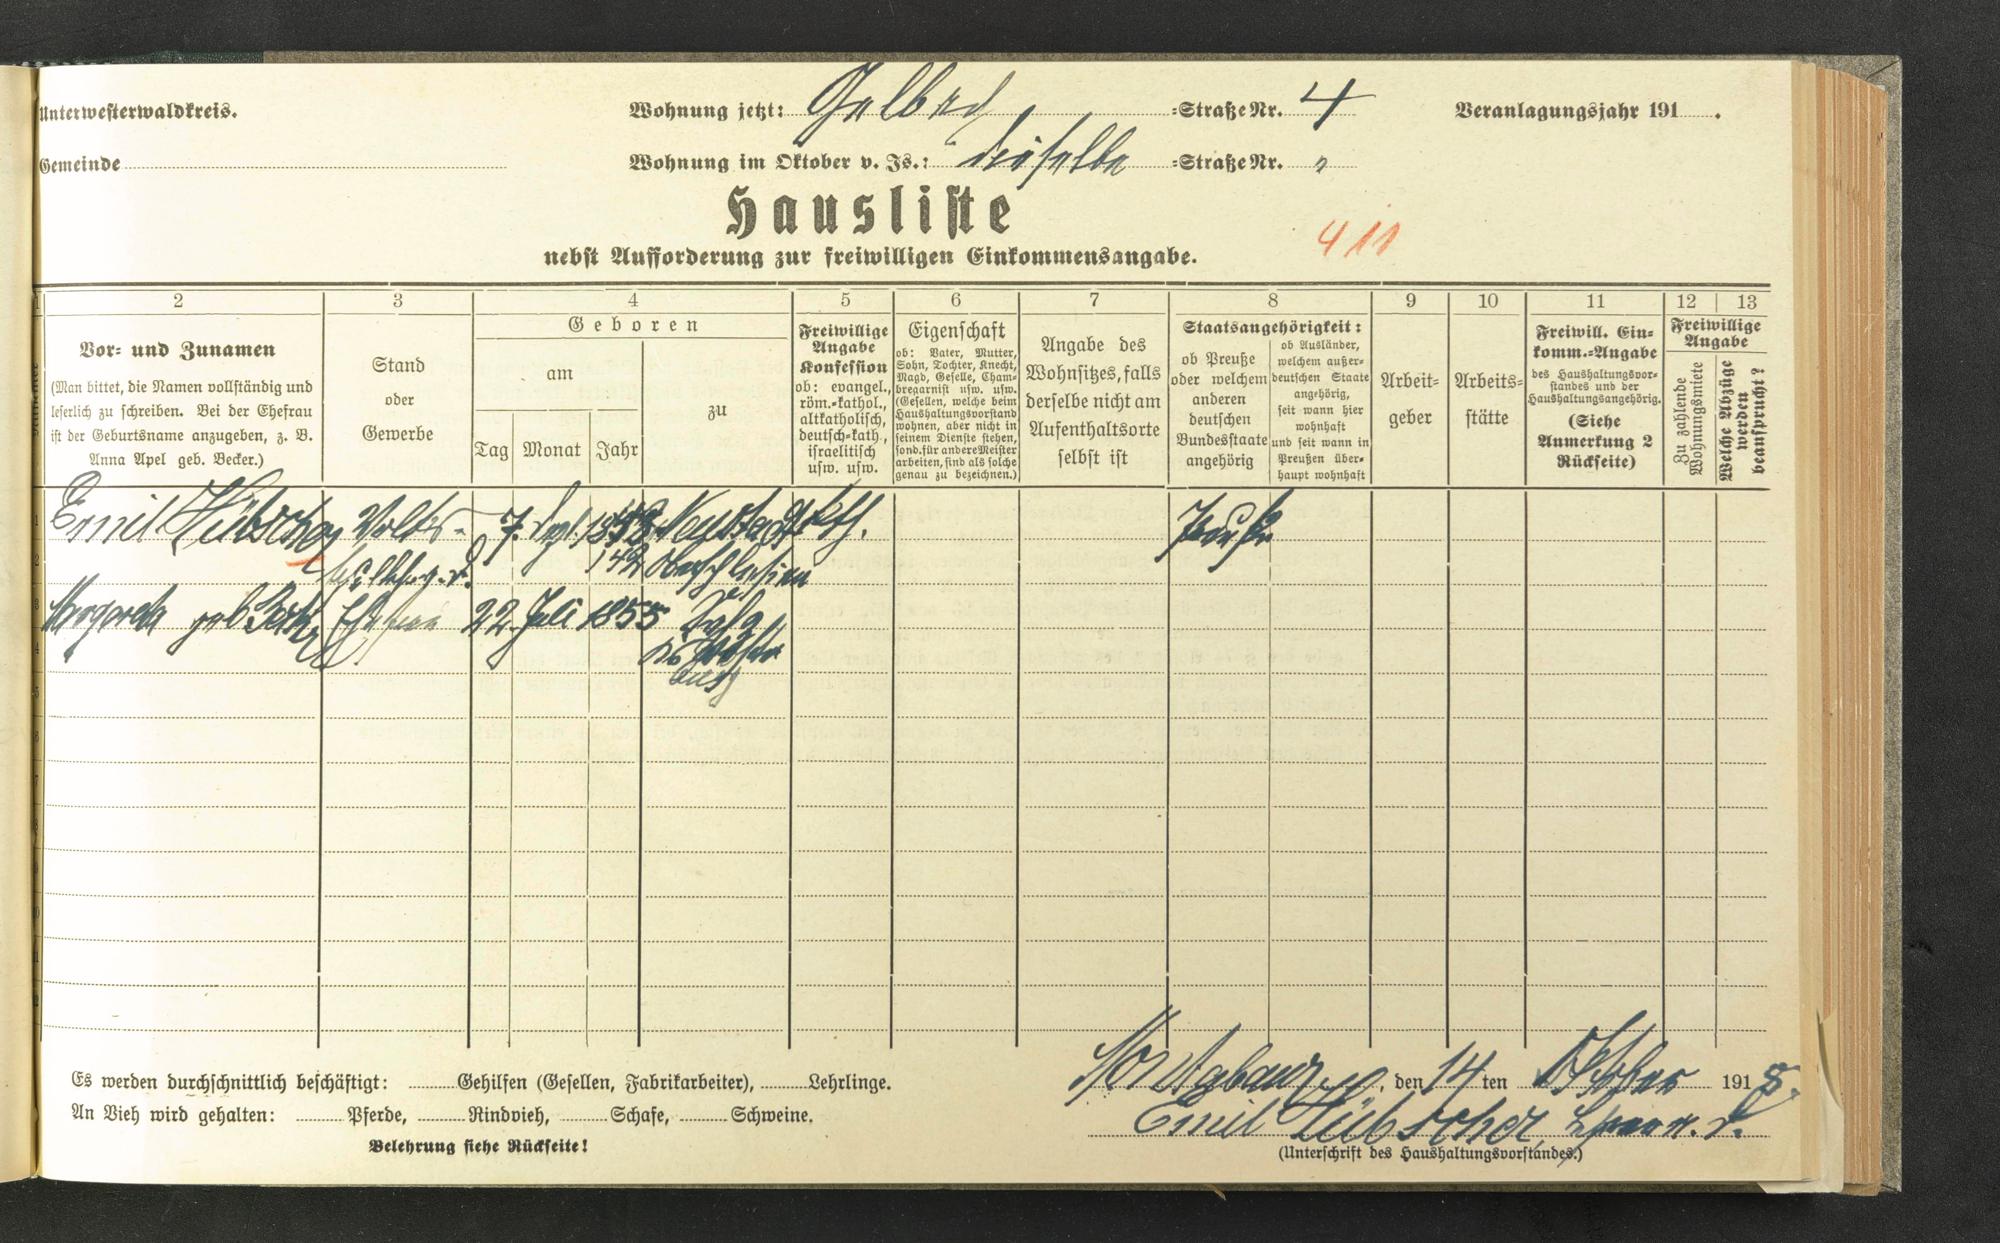 Unterwesterwaldkreis.
Wohnung jetzt: Gelbach =Straße Nr. 4
Veranlagungsjahr 191 .
Gemeinde
Wohnung im Oktober v. Js.: dieselbe =Straße Nr. "
Hausliste
411
nebst Aufforderung zur freiwilligen Einkommensangabe.
1 2 3 4 5 6 7 8 9 10 11 12 13
Vor- und Zunamen
(Man bittet, die Namen vollständig und
leserlich zu schreiben. Bei der Ehefrau
ist der Geburtsname anzugeben, z. B.
Anna Apel geb. Becker.)
Stand
oder
Gewerbe
Geboren
am
Tag Monat Jahr
zu
Freiwillige
Angabe
Konfession
ob: evangel.,
röm.-kathol.,
altkatholisch,
deutsch-kath.,
israelitisch
usw. usw.
Eigenschaft
ob: Vater, Mutter,
Sohn, Tochter, Knecht,
Magd, Geselle, Cham-
bregarnist usw. usw.
(Gesellen, welche beim
Haushaltungsvorstand
wohnen, aber nicht in
seinem Dienste stehen,
sond. für andere Meister
arbeiten, sind als solche
genau zu bezeichnen.)
Angabe des
Wohnsitzes, falls
derselbe nicht am
Aufenthaltsorte
selbst ist
Staatsangehörigkeit:
ob Preuße
oder welchem
anderen
deutschen
Bundesstaate
angehörig
ob Ausländer,
welchem außer-
deutschen Staate
angehörig,
seit wann hier
wohnhaft
und seit wann in
Preußen über-
haupt wohnhaft
Arbeit-
geber
Arbeits-
stätte
Freiwill. Ein-
komm.-Angabe
des Haushaltungsvor-
standes und der
Haushaltungsangehörig.
(Siehe
Anmerkung 2
Rückseite)
Freiwillige
Angabe
Zu zahlende
Wohnungsmiete
Welche Abzüge
werden
beansprucht?
1 Emil Hübscher Volks- 7. Spt. Neustadt kth. Preuße
2 Oberschlesien
3 Margareta geb Ehefrau 22. Juli 1855
4
5
6
7
8
9
10
11
12
Es werden durchschnittlich beschäftigt: Gehilfen (Gesellen, Fabrikarbeiter), Lehrlinge.
Montabaur, den 14 ten Oktober 191 8.
An Vieh wird gehalten: Pferde, Rindvieh, Schafe, Schweine.
Emil Hübscher, Lehrer a. D.
Belehrung siehe Rückseite!
(Unterschrift des Haushaltungsvorstandes.)